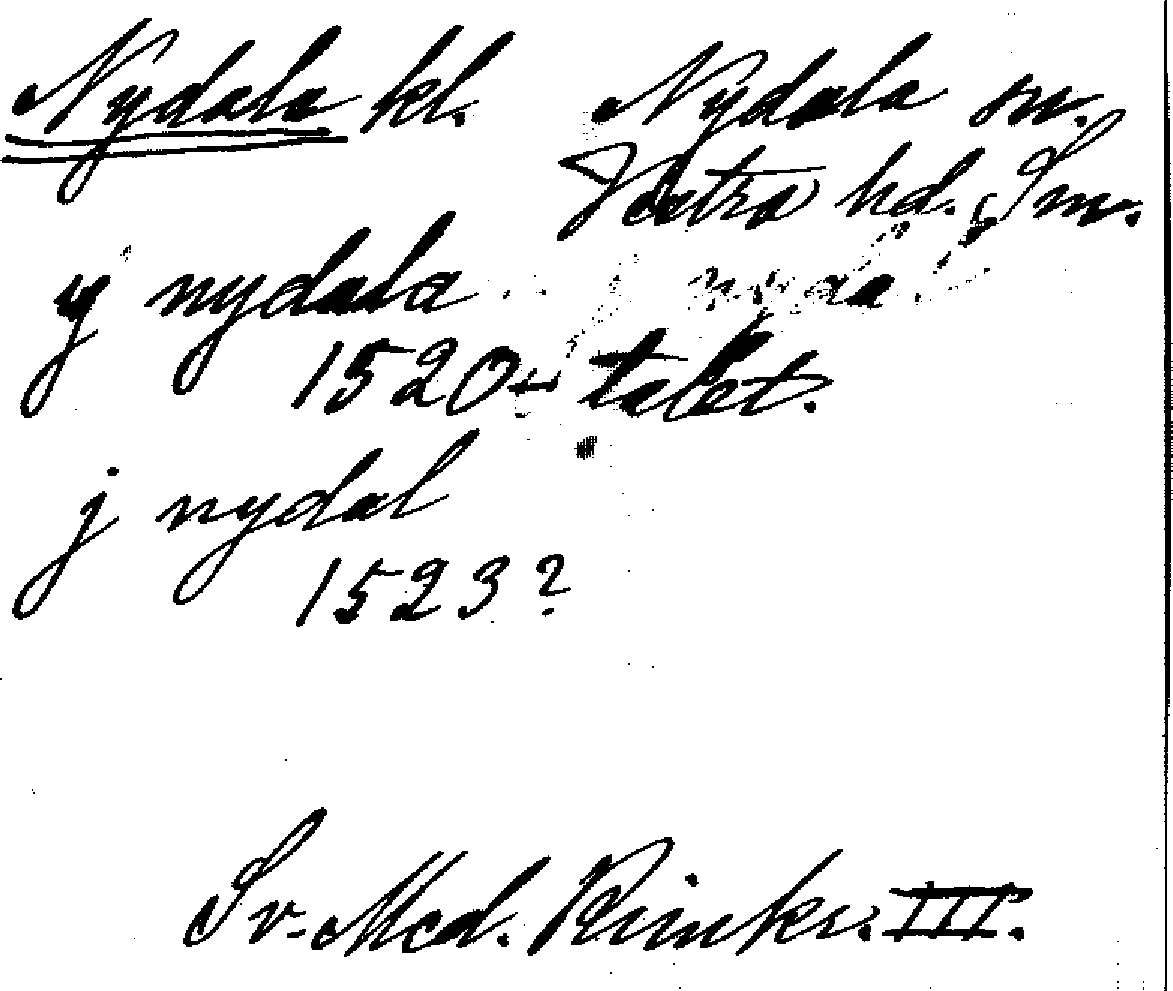 Nydala kl. Nydala sn.
Västra hd. Sm.
y nydala
1520-talet.
j nydal
1523?
Sv. Med. Rimkr. III.